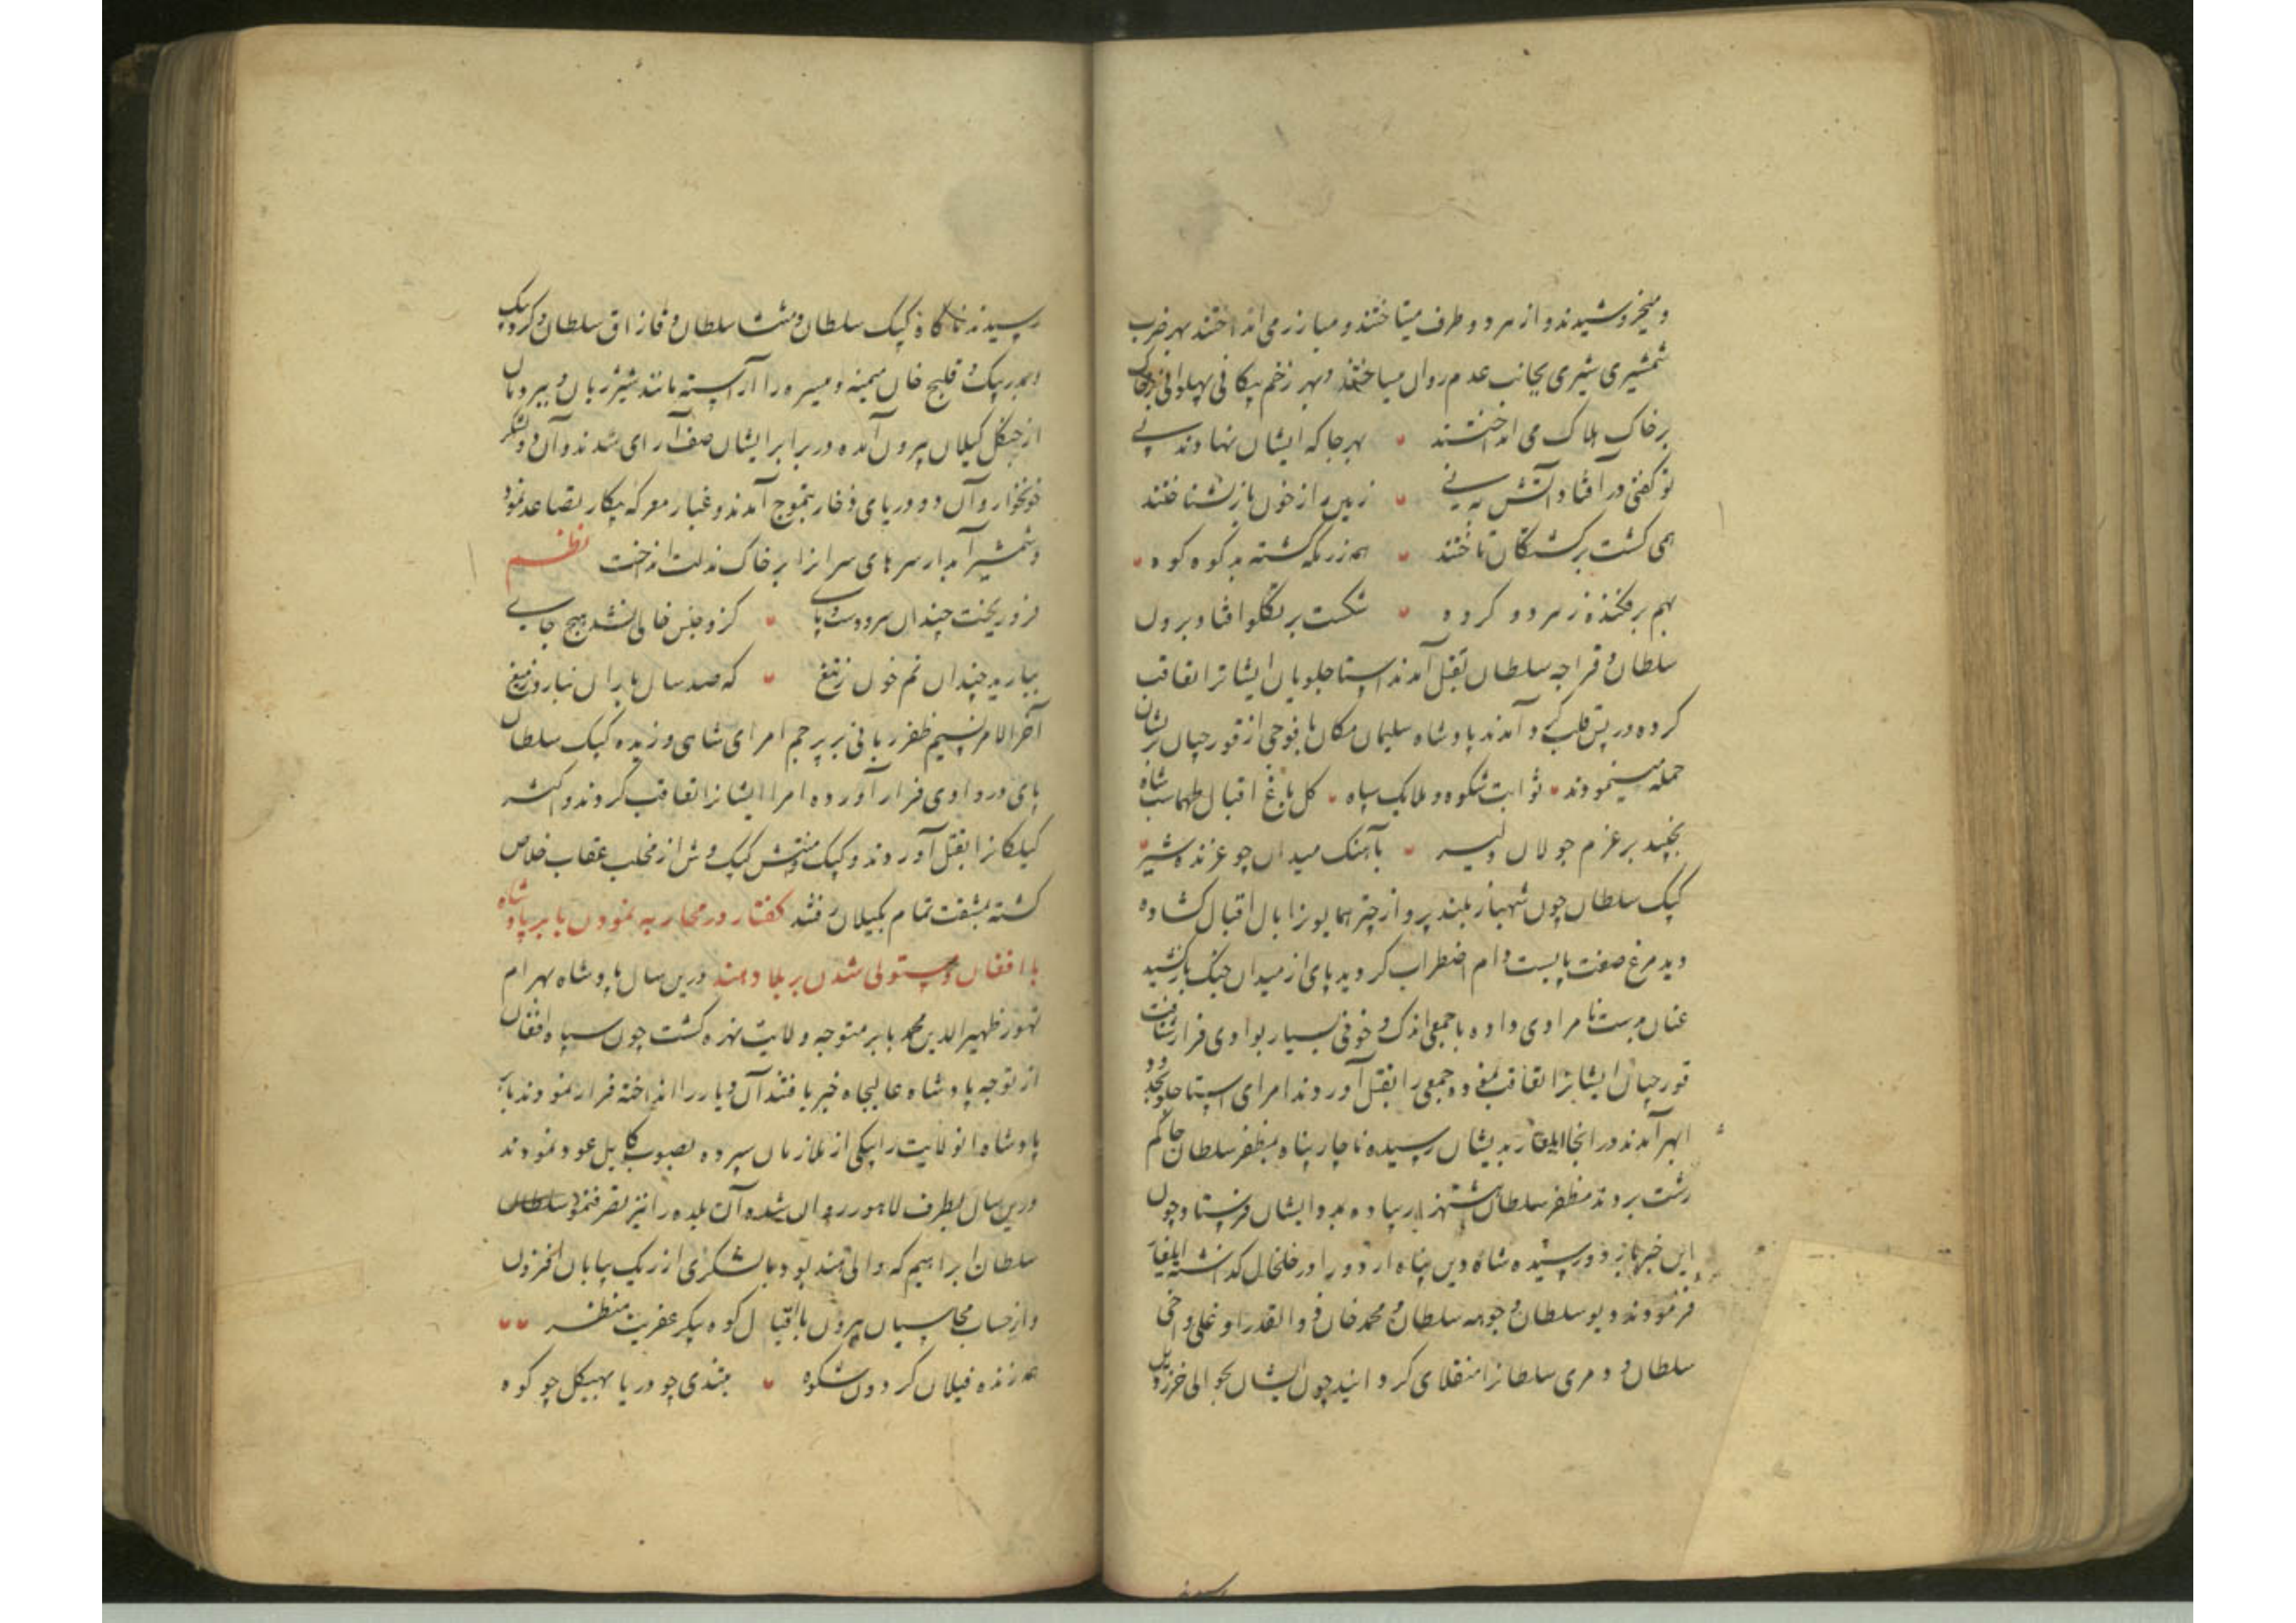 و میخروشیدند و از هر دو طرف میتاختند و مبارز می انداختند بهر ضرب
شمشیری شیری بجانب عدم روان میساختند و بهر زخم پیکانی پهلوانی
بر خاک هلاک می انداختند بهر جا که ایشان نهادند پی
تو گفتی در افتاد آتش به نی زمین را ز خون باز نشناختند
همی کشت بر کشتگان تاختند همه رزمگه کشته بد کوه کوه
بهم بر فکنده ز هر دو گروه شکست بر تکلو افتاد برون
سلطان و قراجه سلطان بقتل آمدند استاجلویان ایشانرا تعاقب
کرده در پس قلب در آمدند پادشاه سلیمان مکان با فوجی از قورچیان بر ایشان
حمله مینمودند ثوابت شکوه و ملایک سپاه کل باغ اقبال طهماسب شاه
بجنبید بر عزم جولان دلیر بآهنک میدان چو غرنده شیر
کپک سلطان چون شهباز بلند پرواز چتر همایونرا بال اقبال کشاده
دید مرغ صفت پابست دام اضطراب کردید پای از میدان جنک باز کشید
عنان بدست نامرادی داده با جمعی اندک و خوفی بسیار بوادی فرار شتافت
قورچیان ایشانرا تعاقب نموده جمعی را بقتل آوردند امرای استاجلو بحدود
ابهر آمدند در انجا ایلغار بدیشان رسیده ناچار پناه بمظفر سلطان حاکم
رشت بردند مظفر سلطان هشتهزار پیاده بمدد ایشان فرستاد چون
این خبر باردو رسیده شاه دین پناه اردو را در خلخال کذاشته ایلغار
فرمودند دیو سلطان و جوهه سلطان و محمد خان ذو القدر اوغلی و اخی
سلطان و دمری سلطانرا منقلای کردانید چون ایشان بحوالی خرزویل
رسیدند ناکاه کپک سلطان و منتشا سلطان و قازاق سلطان و کرد بیک
و بدر بیک و قلیج خان میمنه و میسره را آراسته مانند شیر ژیان و ببر دمان
از جنکل کیلان بیرون آمده در برابر ایشان صف آرای شدند و آن دو لشکر
خونخوار و آن دو دریای ذخار بتموج آمدند و غبار معرکه پیکار تصاعد نمود
و شمشیر آبدار سرهای سرانرا بر خاک مذلت انداخت نظم
فرو ریخت چندان سر و دست و پای کزو جنس خالی نشد هیچ جای
ببارید چندان نم خون ز تیغ که صد سال باران نبارد ز میغ
آخر الامر نسیم ظفر ربانی بر پرچم امرای شاهی وزیده کپک سلطان
پای در وادی فرار آورده امرا ایشانرا تعاقب کردند و اکثر
کیلکانرا بقتل آوردند و کپک و منتش کپک وش از مخلب عقاب خلاص
کشته بمشقت تمام بکیلان رفتند کفتار در محاربه نمودن بابر پادشاه
با افغان و مستولی شدن بر بلاد هند درین سال پادشاه بهرام
تهور ظهیر الدین محمد بابر متوجه ولایت نهره کشت چون سپاه افغان
از توجه پادشاه عالیجاه خبر یافتند آن دیار را انداخته فرار نمودند
پادشاه انولایت را بیکی از ملازمان سپرده بصوب کابل عود نمودند
درین سال بطرف لاهور روان شده آن بلده را نیز تصرف نمود سلطان
سلطان ابراهیم که والی هند بود با لشکری از ریک بیابان افزون
و از حساب محاسبان بیرون با اقبال کوه پیکر عفریت منظر
همه زنده فیلان کردون شکوه بتندی چو دریا بهیکل چو کوه
رسیدند